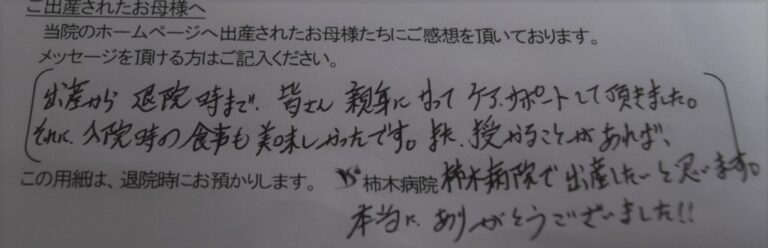 ご出産されたお母様へ
当院のホームページへ出産されたお母様たちにご感想を頂いております。
メッセージを頂ける方はご記入ください。
出産から 退院時まで、皆さん 親身になって ケア、サポートして頂きました。
それに、入院時の食事も美味しかったです。また、授かることがあれば、
この用紙は、退院時にお預かりします。 柿木病院 柿木病院で出産したいと思います。
本当に、ありがとうございました!!